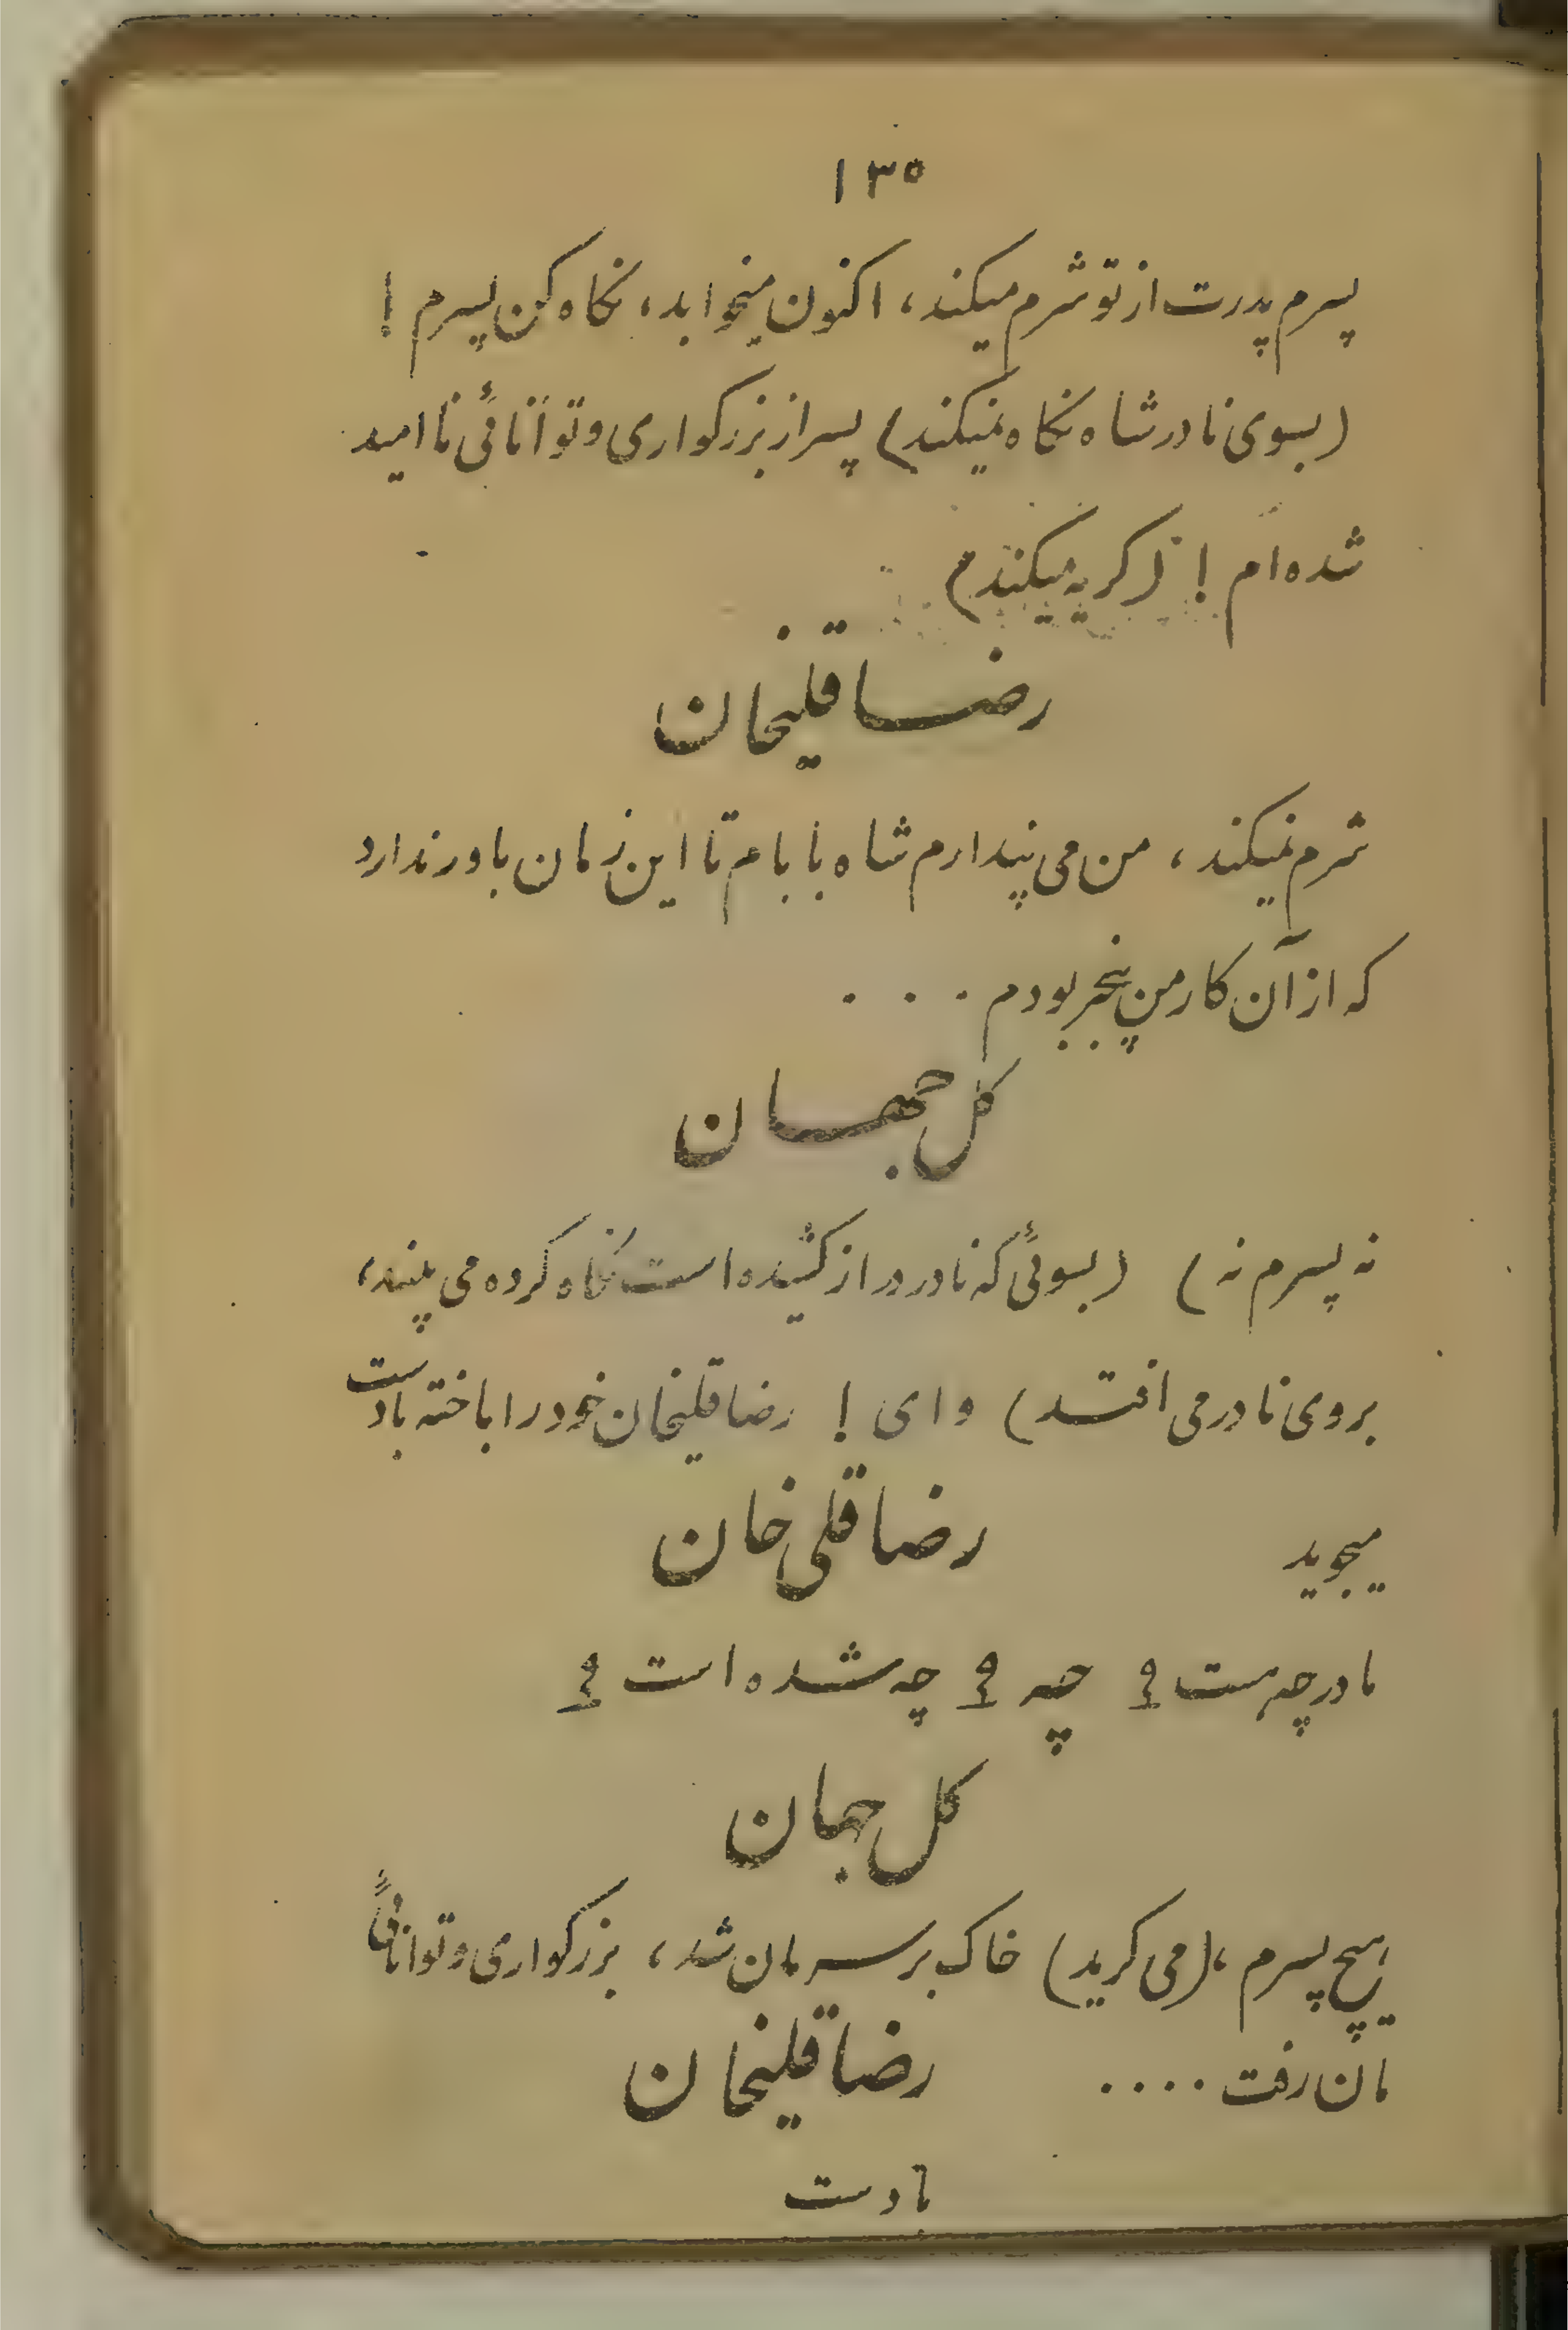 ۱۳۵
پسرم پدرت از تو شرم میکند، اکنون میخوابد، نکاه کن پسرم !
(بسوی نادر شاه نکاه نمیکند) پسر از بزرکواری و توانائی نا امید
شده ام ! (کریه میکند)
رضا قلیخان
شرم نمیکند، من می پندارم شاه بابام تا این زمان باور ندارد
که از آن کار من بیخبر بودم ...
کل جهان
نه پسرم نه ) (بسوئی که نادر دراز کشیده است نکاه کرده می بیند،
بروی نادر می افتد) وای ! رضا قلیخان خود را باخته بادست
میجوید رضا قلی خان
مادر چه هست ؟ چه ؟ چه شده است ؟
کل جهان
هیچ پسرم ،(می کرید) خاک بر سرمان شد، بزرکواری و توانائی
مان رفت .... رضا قلیخان
بادست